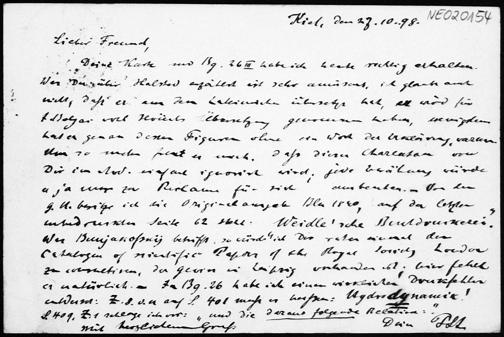 Kiel, den 27.10.98.
NE020154
Lieber Freund,
Deine Karte und Bg. 26 habe ich heute richtig erhalten.
Was Du über Halsted erzählst ist sehr amüsant, ich glaube auch
nicht, daß er aus dem Lateinischen übersetzt hat, er wird für
J. Bolyai wohl Übersetzung genommen haben, wenigstens
hat er genau dessen Figuren ohne ein Wort der
daß dieser Charlatan von
Dir einfach ignorirt wird; jede würde
er ja nur zur Reclame für sich ausbeuten. Von den
g. A. besitze ich die Originalausgabe Bln 1840, auf der letzten
unbedruckten Seite 62 steht: Weidle'sche Buchdruckerei.
Was Bunjakofskij betrifft, so würde ich Dir raten einmal den
Catalogue of scientific Papers of the Royal Society London
zu consultiren, der gewiss in Leipzig vorhanden ist; hier fehlt
er natürlich. — Zu Bg. 26 habe ich einen wirklichen Druckfehler
entdeckt: Z. 8 v.u. auf S. 401 muß es heißen: Hydrodynamik!
S. 409, Z. schlage ich vor: "und die daraus folgende Relation:"
Mit herzlichem Gruß Dein